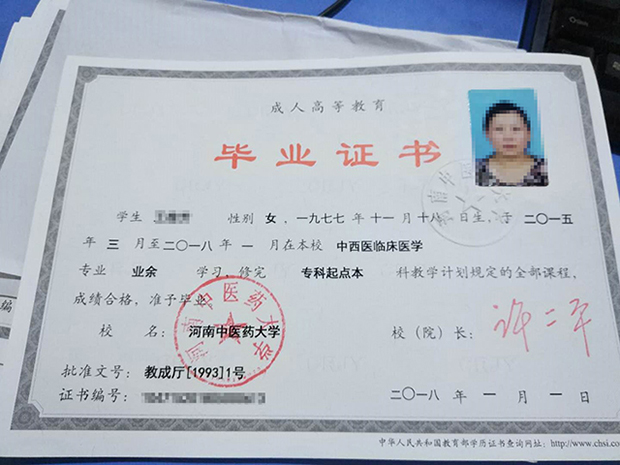 成人高等教育
毕业证书
学生 性别 女，一九七七 年 十一 月 十八 日生，于 二〇一五
年 三 月至二〇一八 年 一 月在本校 中西医临床医学
专业 业余 学习，修完 专科起点本 科教学计划规定的全部课程，
成绩合格，准予毕业。
校 名： 河南中医药大学 校（院）长： 许二平
批准文号： 教成厅[1993]1号
证书编号： 二〇一八 年 一 月 一 日
中华人民共和国教育部学历证书查询网址：http://www.chsi.co
河南中医药大学